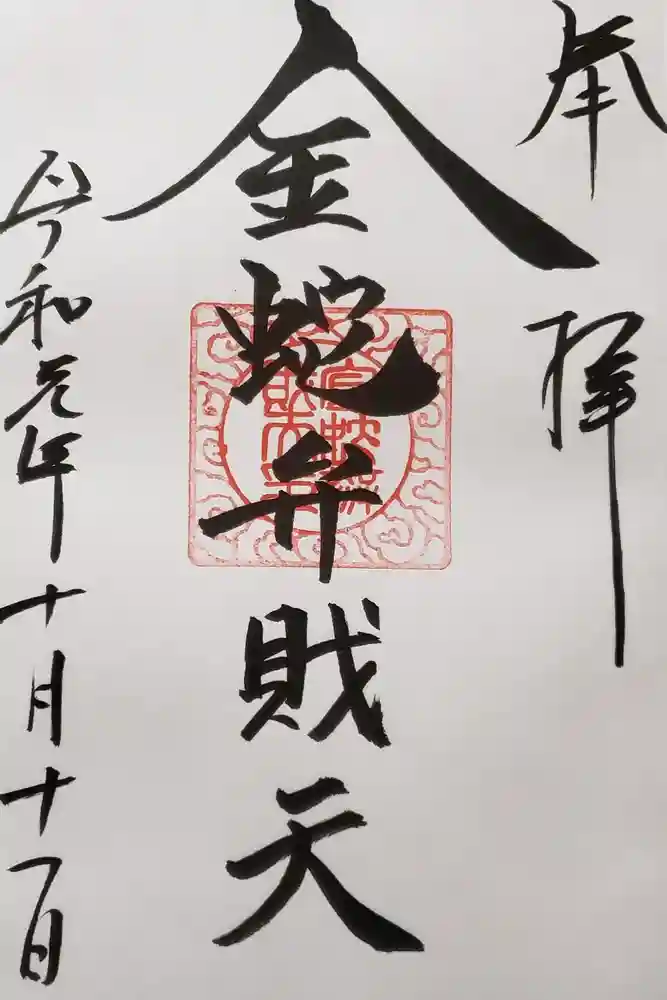 奉拝
金蛇弁財天
令和元年十月十一日